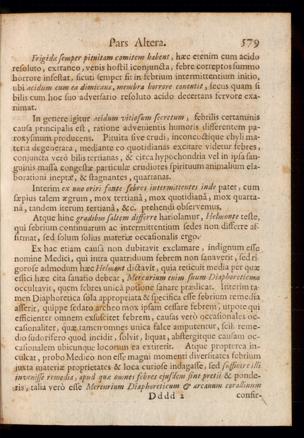 Pars Altera. 579
Frigida semper pituitam comitem habent, hæc etenim cum acido
resoluto, extraneo, venis hostil iconjuncta, febre correptos summo
horrore infestat, sicuti semper fit in febrium intermittentium initio,
ubi acidum cum ea dimicans, membra horrore concutit, secus quam si
bilis cum hoc suo adversario resoluto acido decertans fervore exa-
nimat.
In genere igitur acidum vitiosum secretum, febrilis certaminis
causa principalis est, ratione advenientis humoris differentem pa-
roxysmum producens. Pituita sive crudi, inconcoctique chyli ma-
teria degenerata, mediante co quotidianas excitare videtur febres,
conjuncta verò bilis tertianas, & circa hypochondria vel in ipsa san-
guinis massa congestæ particulæ crudiores spirituum animalium ela-
borationi ineptæ, & stagnantes, quartanas.
Interim ex uno oriri fonte febres intermittentes inde patet, cum
sæpius talem ægrum, mox tertianâ, mox quotidianâ, mox quarta-
nâ, tandem iterum tertianâ, &c. prehendi observemus.
Atque hinc gradibus saltem differre hariolamur, Helmonte teste,
qui febrium continuarum ac intermittentium sedes non differre af-
firmat, sed solum solius materiæ occasionalis ergo.
Ex hac etiam causâ non dubitavit exclamare, indignum esse
nomine Medici, qui intra quatriduum febrem non sanaverit, sed ri-
gorose admodum hæc Helmont dictavit, quia reticuit media per quæ
essici hæc cita sanatio debeat, Mercurium enim suum Diaphoreticum
occultavit, quem febres unicâ potione sanare prædicat. Interim ta-
men Diaphoretica sola appropriata & specifica esse febrium remedia
asserit, quippe sedato archeo mox ipsam cessare febrem, utpote qui
efficienter omnem exsuscitet febrem, causis verò occasionales oc-
casionaliter, quæ tamen omnes unica falce amputentur, scil. reme-
dio sudorifero quod incidit, solvit, liquat, abstergitque causam oc-
casionalem ubicunque locorum ea extiterit. Atque propterea in-
culcat, probo Medico non esse magni momenti diversitates febrium
juxta materiæ proprietates & loca curiose indagasse, sed suffecere illi
invenisse remedia, apud quæ omnes febres ejusdem sint pretii & ponde-
ris, talia verò esse Mercurium Diaphoreticum & arcanum corallinum
Dddd 2 confir-